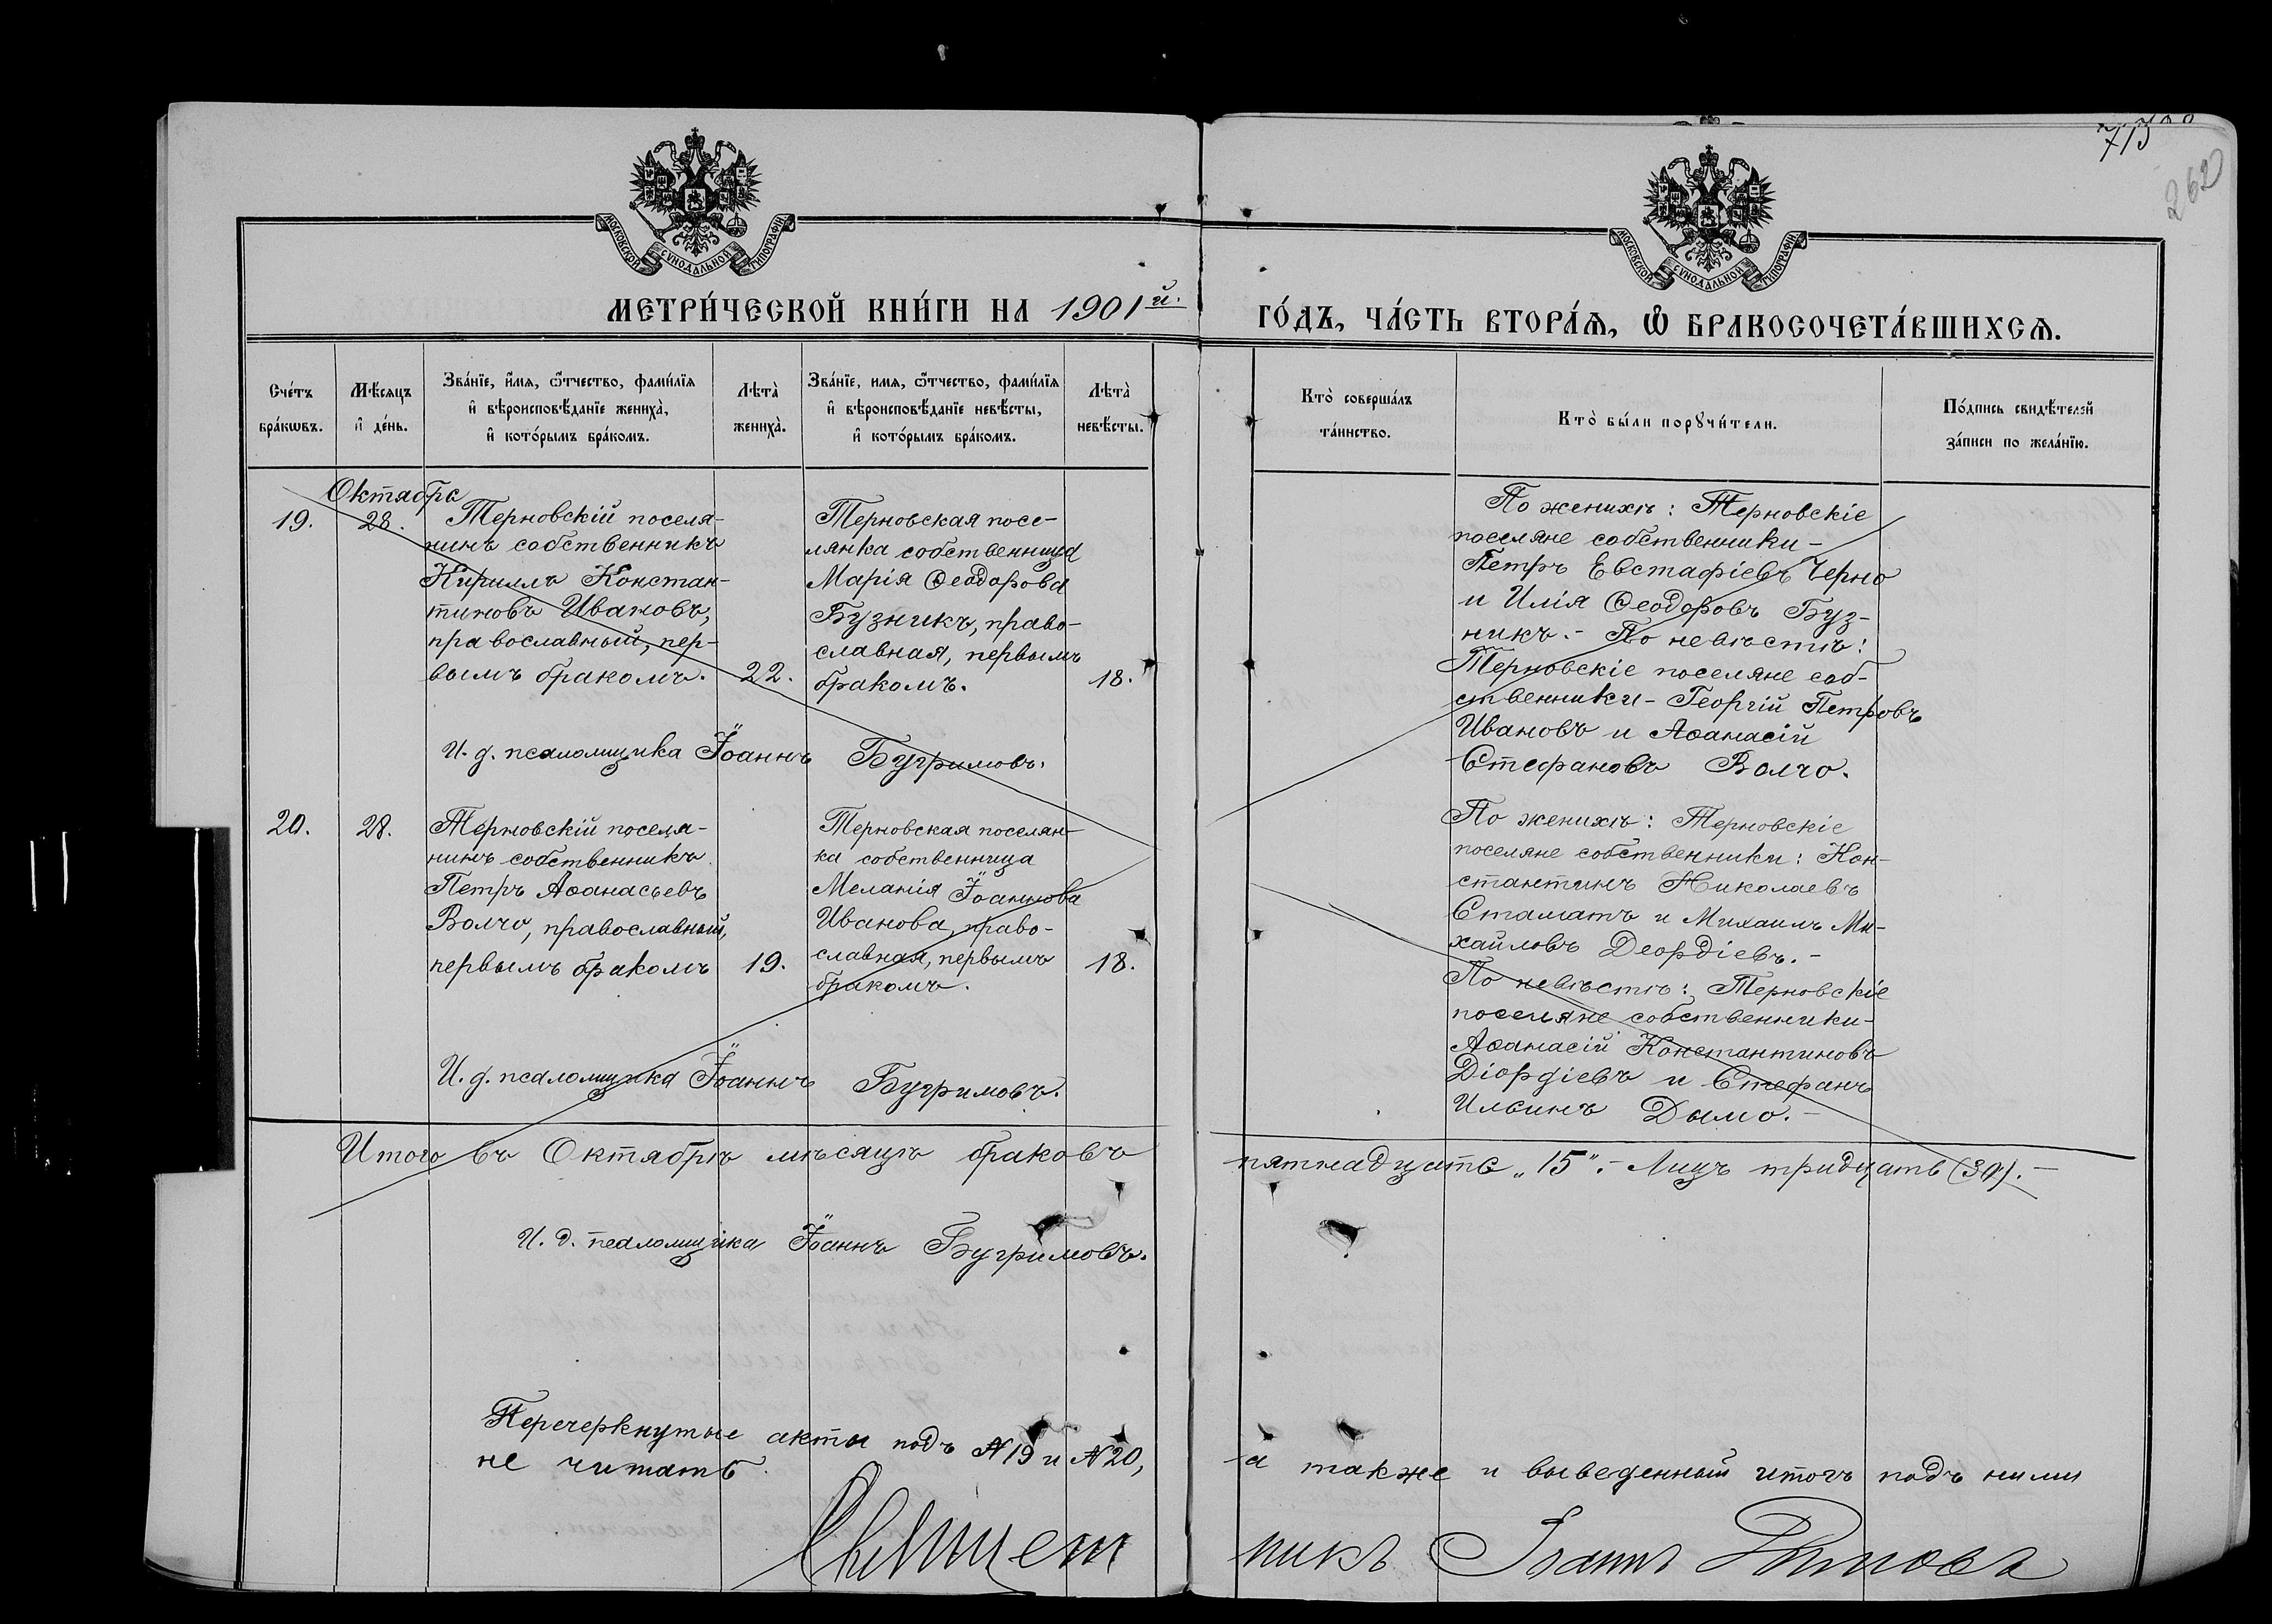 713
262
МОСКОВСКОЙ СѴНОДАЛЬНОЙ ТИПОГРАФІИ
МОСКОВСКОЙ СѴНОДАЛЬНОЙ ТИПОГРАФІИ
МЕТРИ́ЧЕСКОЙ КНИ́ГИ НА 1901й.
ГО́ДЪ, ЧА́СТЬ ВТОРА́Ѧ, Ѽ БРАКОСОЧЕТА́ВШИХСѦ.
Сче́тъ
бра́кѡвъ.
Мѣ́сяцъ
и҆ де́нь.
Зва́нїе, и҆́мя, ѻ҆́тчество, фами́лїя
и҆ вѣроисповѣ́данїе жениха̀,
и҆ кото́рымъ бра́комъ.
Лѣта̀
жениха̀.
Зва́нїе, имя, ѻ҆́тчество, фами́лїя
и҆ вѣроисповѣ́данїе невѣ́сты,
и҆ кото́рымъ бра́комъ.
Лѣта̀
невѣ́сты.
Кто̀ соверша́лъ
та́инство.
Кто̀ бы́ли порꙋчи́тели.
По́дпись свидѣ́телей
за́писи по жела́нїю.
Октабра
19.
28.
Терновскій поселя-
нинъ собственникъ
Кириллъ Констан-
тиновъ Ивановъ,
православный, пер-
вымъ бракомъ.
22.
Терновская посе-
лянка собственница
Марія Ѳеодорова
Бузникъ, право-
славная, первымъ
бракомъ.
18.
По женихѣ: Терновскіе
поселяне собственники -
Петръ Евстафіевъ Черно
и Илія Ѳеодоровъ Буз-
никъ. - По невѣстѣ:
Терновскіе поселяне соб-
ственники - Георгій Петровъ
Ивановъ и Аѳанасій
Стефановъ Волчо.
И. д. псаломщика Іоаннъ Бугримовъ.
20.
28.
Терновскій поселя-
нинъ собственникъ
Петръ Аѳанасьевъ
Волчо, православный,
первымъ бракомъ
19.
Терновская поселян-
ка собственница
Меланія Іоаннова
Иванова, право-
славная, первымъ
бракомъ.
18.
По женихѣ: Терновскіе
поселяне собственники: Кон-
стантинъ Николаевъ
Стаматъ и Михаилъ Ми-
хайловъ Деордіевъ. -
По невѣстѣ: Терновскіе
поселяне собственники -
Аѳанасій Константиновъ
Діордіевъ и Стефанъ
Ильинъ Дымо. -
И. д. псаломщика Іоаннъ Бугримовъ.
Итого въ Октябрѣ мѣсяцѣ браковъ пятнадцать „15". - Лицъ тридцать (30). -
И. д. псаломщика Іоаннъ Бугримовъ.
Перечеркнутые акты подъ №19 и №20, а также и выведенный итогъ подъ ними
не читать.
Священникъ Іоаннъ